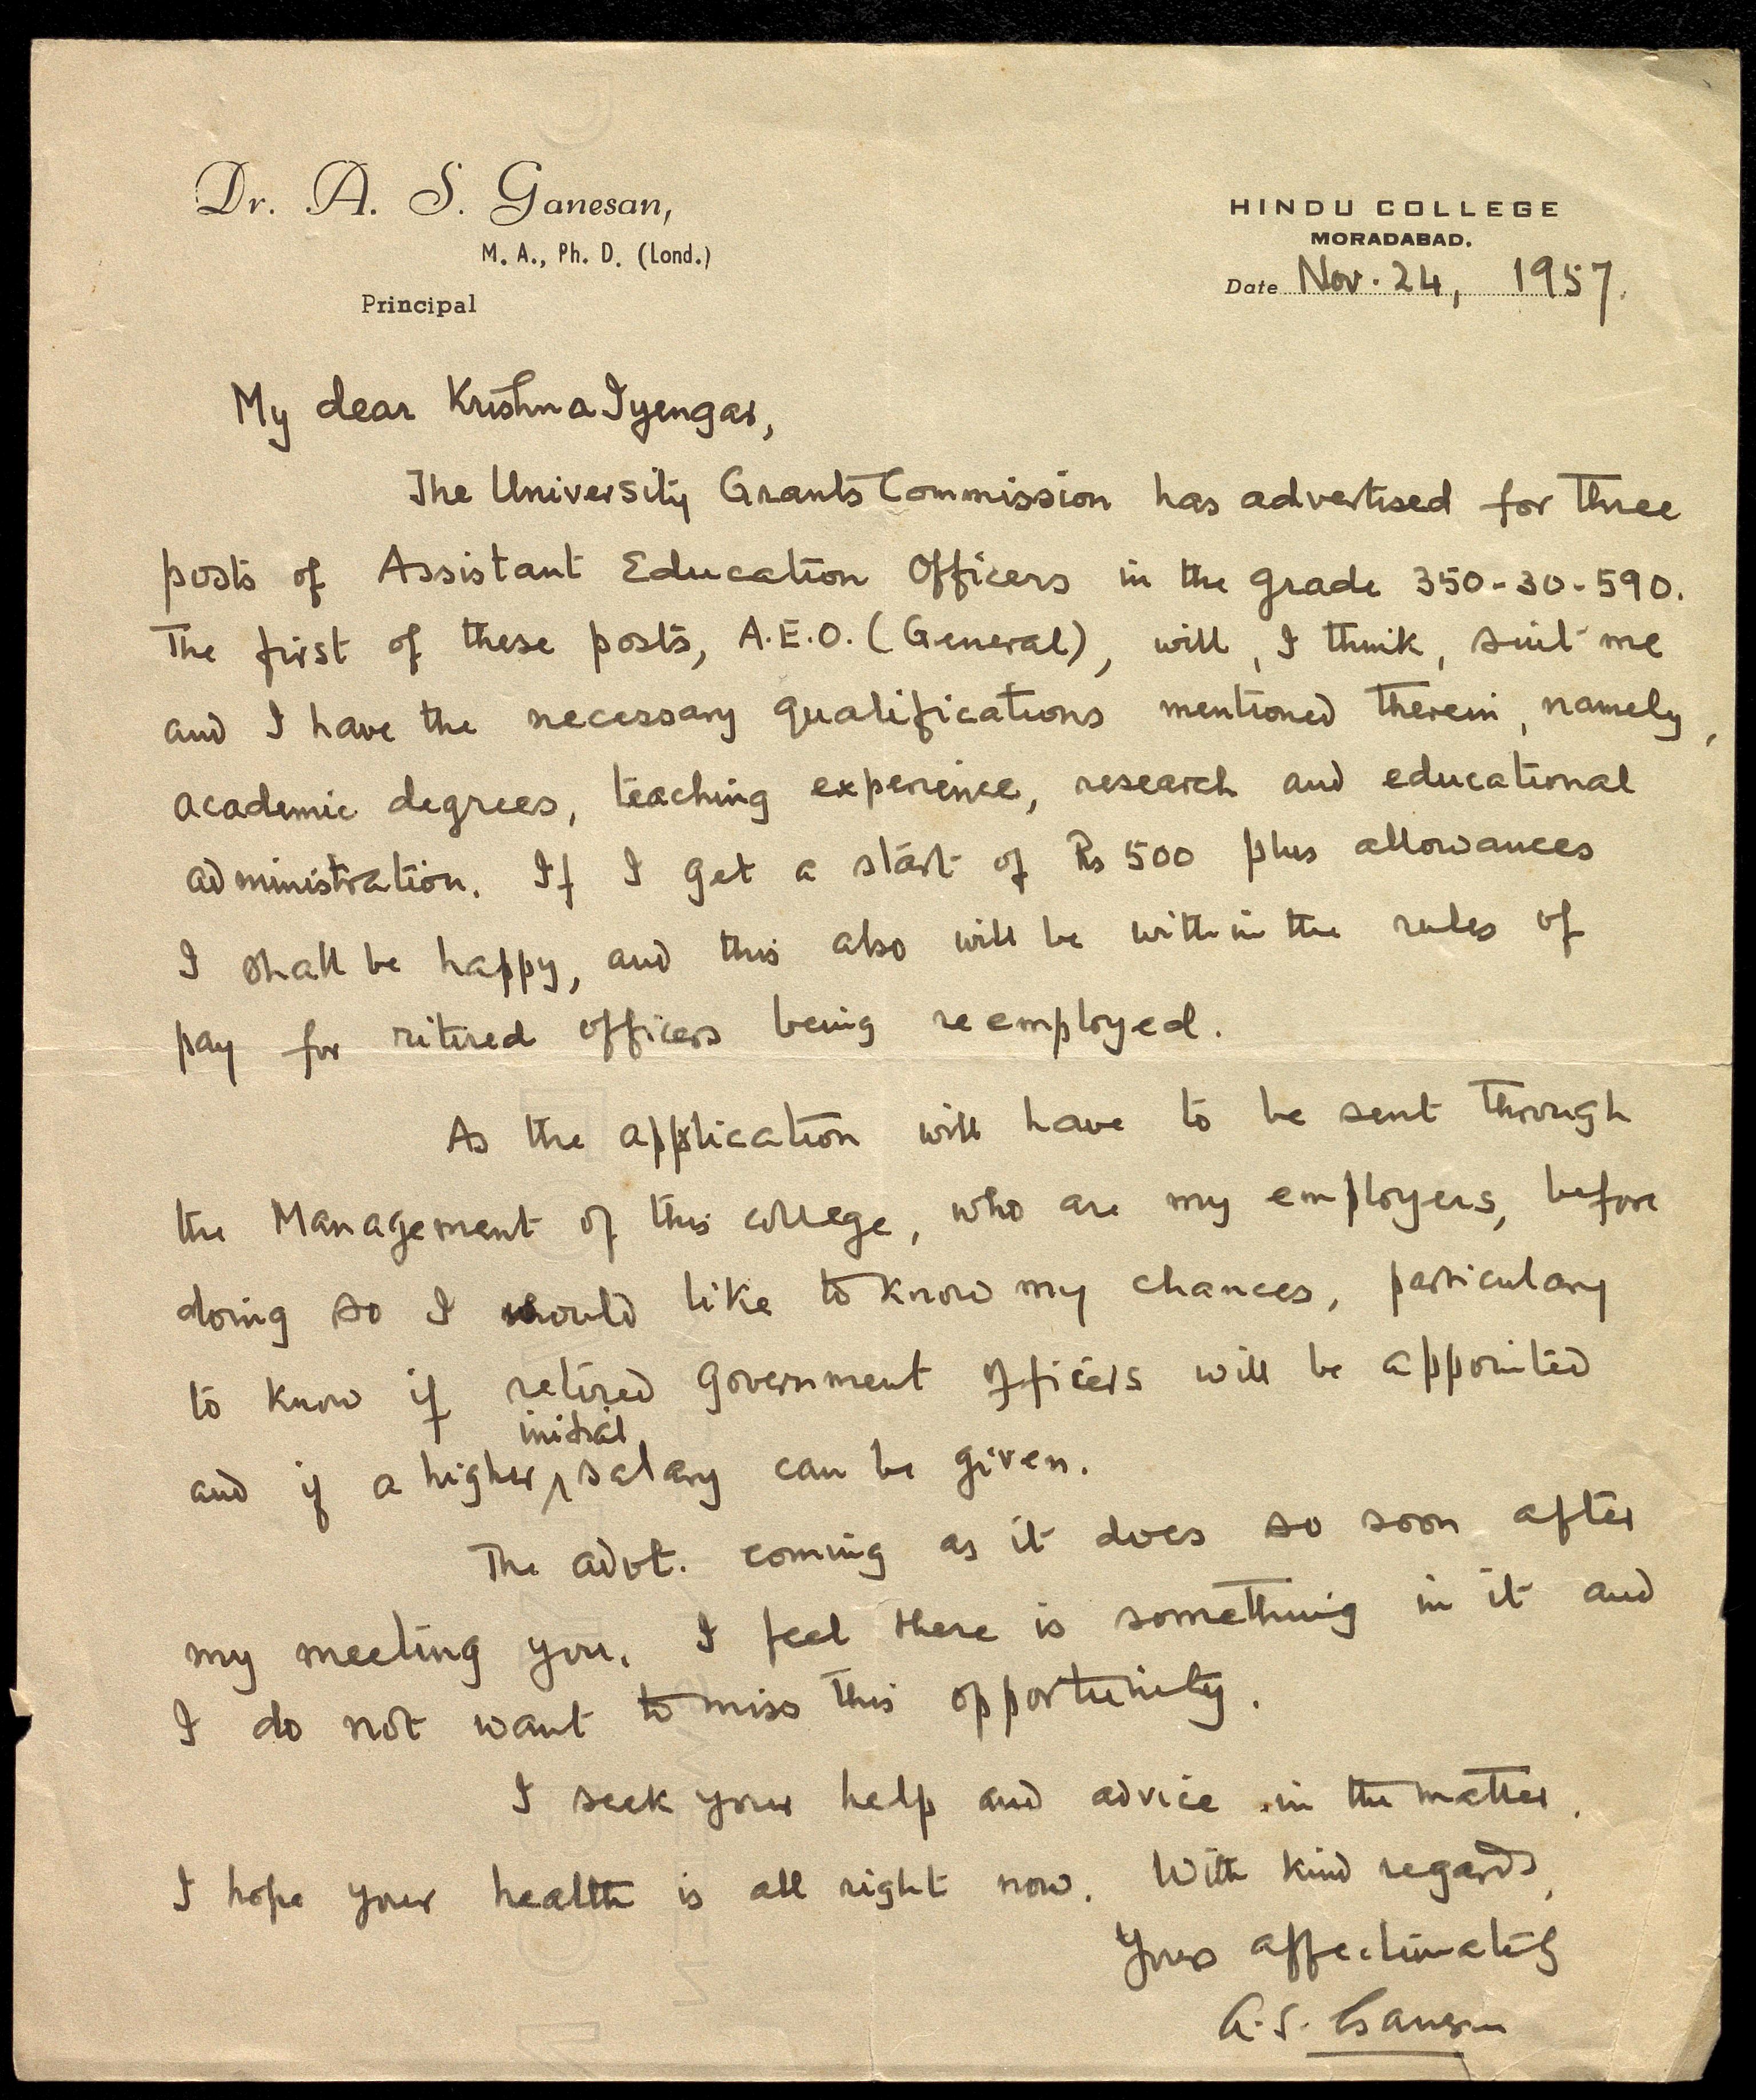 Dr. A. S. Ganesan,
M. A., Ph. D. (Lond.)
Principal
HINDU COLLEGE
MORADABAD.
Date Nov. 24, 1957.
My dear Krishna Iyengar,
The University Grants Commission has advertised for three
posts of Assistant Education Officers in the grade 350-30-590.
The first of these posts, A.E.O. (General), will, I think, suit me
and I have the necessary qualifications mentioned therein, namely,
academic degrees, teaching experience, research and educational
administration. If I get a start of Rs 500 plus allowances
I shall be happy, and this also will be within the rules of
pay for retired officers being reemployed.
As the application will have to be sent through
the Management of this college, who are my employers, before
doing so I would like to know my chances, particulary
to know if retired government officers will be appointed
initial
and if a higher salary can be given.
The advt. coming as it does so soon after
my meeting you, I feel there is something in it and
I do not want to miss this opportunity.
I seek your help and advice in the matter.
I hope your health is all right now. With kind regards,
Yours affectionately
A. S. Ganesan